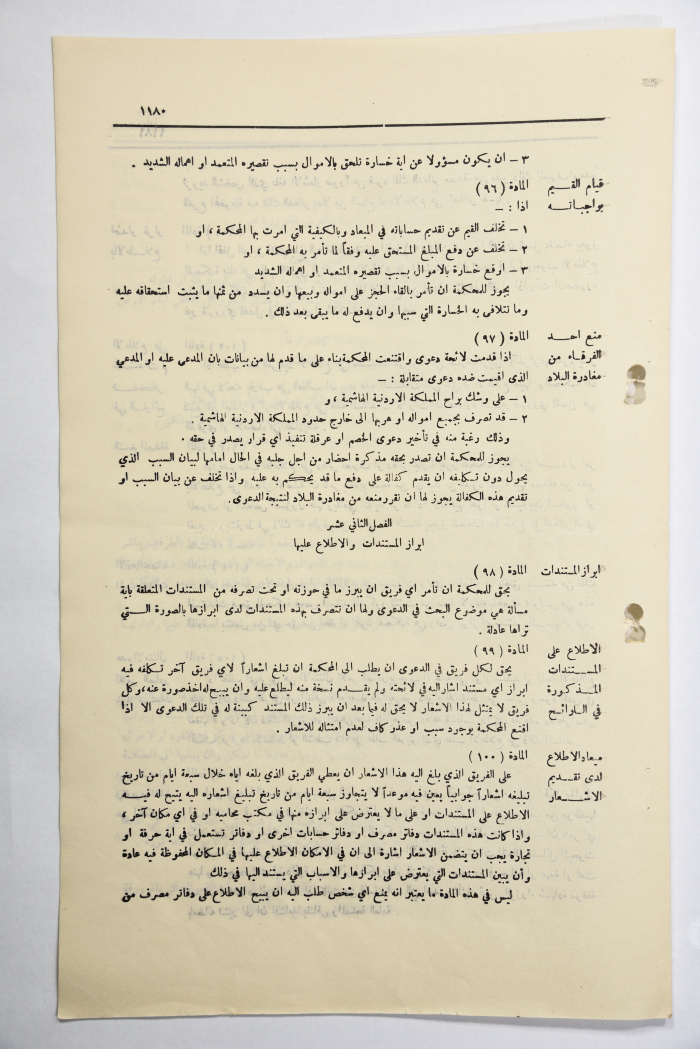 ١١٨٠
٣ – ان يكون مسؤولا عن اية خسارة تلحق بالاموال بسبب تقصيره المتعمد او اهماله الشديد .
قيام القيم المادة ( ٩٦ )
بواجباته اذا : –
١ – تخلف القيم عن تقديم حساباته في الميعاد وبالكيفية التي امرت بها المحكمة ، او
٢ – تخلف عن دفع المبلغ المستحق عليه وفقاً لما تأمر به المحكمة ، او
٣ – اوقع خسارة بالاموال بسبب تقصيره المتعمد او اهماله الشديد
يجوز للمحكمة ان تأمر بالقاء الحجز على امواله وبيعها وان يسدد من ثمنها ما يثبت استحقاقه عليه
وما تتلافى به الخسارة التي سببها وان يدفع له ما يبقى بعد ذلك .
منع احد المادة ( ٩٧ )
الفرقاء من اذا قدمت لائحة دعوى واقتنعت المحكمة بناء على ما قدم لها من بيانات بان المدعى عليه او المدعي
مغادرة البلاد الذى اقيمت ضده دعوى متقابلة : –
١ – على وشك براح المملكة الاردنية الهاشمية ، و
٢ – قد تصرف بجميع امواله او هربها الى خارج حدود المملكة الاردنية الهاشمية .
وذلك رغبة منه في تأخير دعوى الخصم او عرقلة تنفيذ اي قرار يصدر في حقه .
يجوز للمحكمة ان تصدر بحقه مذكرة احضار من اجل جلبه في الحال امامها لبيان السبب الذي
يحول دون تكليفه ان يقدم كفالة على دفع ما قد يحكم به عليه واذا تخلف عن بيان السبب او
تقديم هذه الكفالة يجوز لها ان تقرر منعه من مغادرة البلاد لنتيجة الدعوى.
الفصل الثاني عشر
ابراز المستندات والاطلاع عليها
ابراز المستندات المادة ( ٩٨ )
يحق للمحكمة ان تأمر اي فريق ان يبرز ما في حوزته او تحت تصرفه من المستندات المتعلقة باية
مسألة هي موضوع البحث في الدعوى ولها ان تتصرف بهذه المستندات لدى ابرازها بالصورة التي
تراها عادلة .
الاطلاع على المادة ( ٩٩ )
المستندات يحق لكل فريق في الدعوى ان يطلب الى المحكمة ان تبلغ اشعاراً لاي فريق آخر تكلفه فيه
المذكورة ابراز اي مستند اشار اليه في لائحته ولم يقدم نسخة منه ليطلع عليه وان يبيح له اخذ صورة عنه، وكل
في اللوائح فريق لا يمتثل لهذا الاشعار لا يحق له فيما بعد ان يبرز ذلك المستند كبينة له في تلك الدعوى الا اذا
اقنع المحكمة بوجود سبب او عذر كاف لعدم امتثاله للاشعار .
ميعاد الاطلاع المادة ( ١٠٠ )
لدى تقديم على الفريق الذي بلغ اليه هذا الاشعار ان يعطي الفريق الذي بلغه اياه خلال سبعة ايام من تاريخ
الاشعار تبليغه اشعاراً جوابياً يعين فيه موعداً لا يتجاوز سبعة ايام من تاريخ تبليغ اشعاره اليه يتيح له فيه
الاطلاع على المستندات او على ما لا يعترض على ابرازه منها في مكتب محاميه او في اي مكان آخر ،
واذا كانت هذه المستندات دفاتر مصرف او دفاتر حسابات اخرى او دفاتر تستعمل في اية حرفة او
تجارة يجب ان يتضمن الاشعار اشارة الى ان في الامكان الاطلاع عليها في المكان المحفوظة فيه عادة
وأن يبين المستندات التي يعترض على ابرازها والاسباب التي يستند اليها في ذلك
ليس في هذه المادة ما يعتبر انه يمنع اي شخص طلب اليه ان يبيح الاطلاع على دفاتر مصرف من